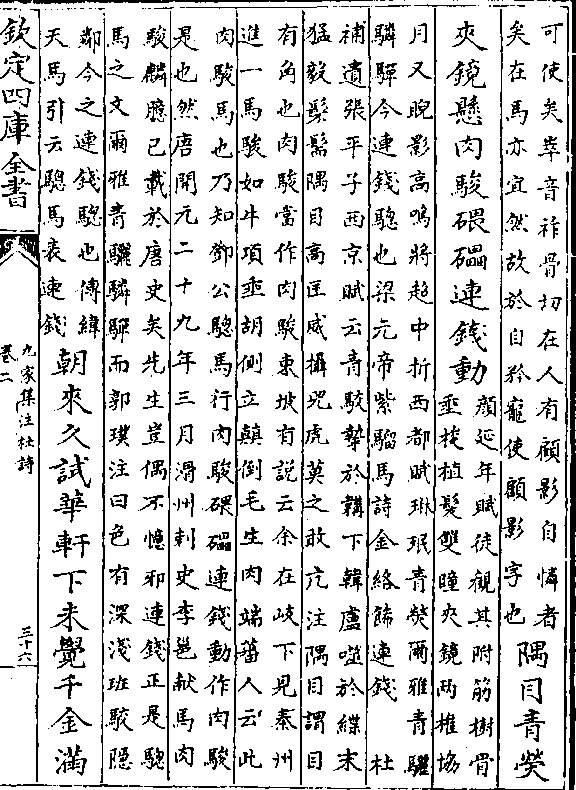 可使矣崒音祚骨切在人有顧影自憐者
矣在馬亦宜然故於自矜寵使顧影字也
隅目青熒
夾鏡懸肉駿碨礧連錢動
顔延年賦徒觀其附筋樹骨
垂梭植髮雙瞳夾鏡兩權協
月又睨影高鳴將超中折西都賦琳珉青熒爾雅青驪
驎驒今連錢驄也梁元帝紫騮馬詩金絡飾連錢 杜
補遺張平子西京賦云青骹摯於韝下韓盧噬於緤末
猛毅髬髵隅目高匡威攝兕虎莫之敢亢注隅目謂目
有角也肉駿當作肉騣東坡有説云余在岐下見秦州
進一馬駿如牛項垂胡側立顛倒毛生肉端蕃人云此
肉駿馬也乃知鄧公驄馬行肉駿碨礧連錢動作肉駿
是也然唐開元二十九年三月滑州刺史李邕献馬肉
駿麟臆已載於唐史矣先生豈偶不憶邪連錢正是驄
馬之文爾雅青驪驎驒而郭璞注曰色有深淺班駁隠
粼今之連錢驄也傅緯
天馬引云驄馬表連錢
朝來久試華軒下未覺千金滿
欽定四庫全書
九家集注杜詩
卷二
三十六